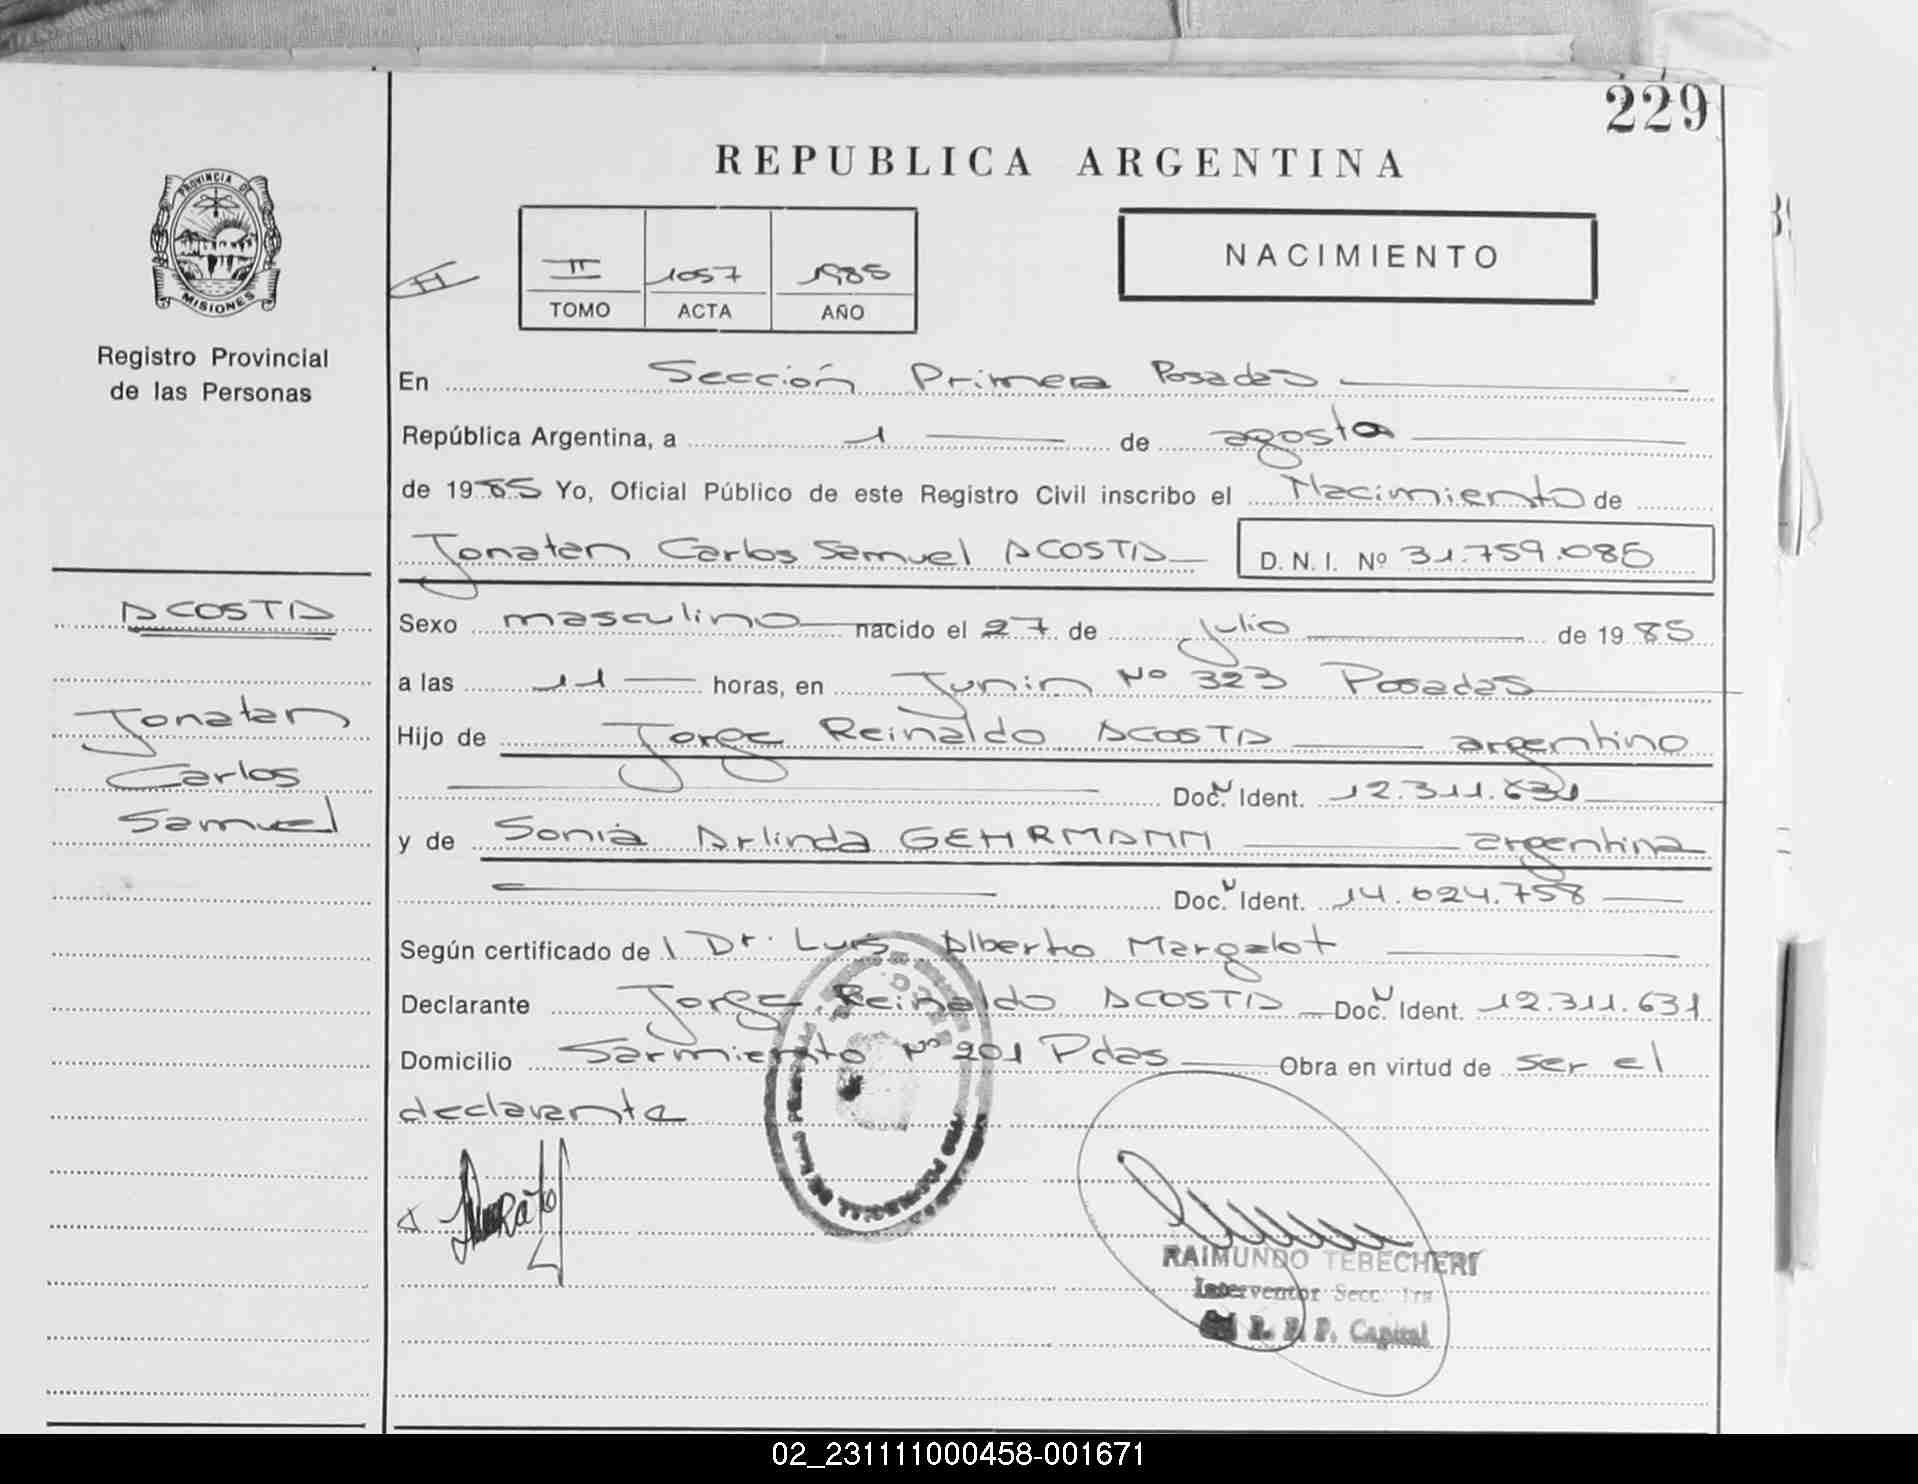 229
REPUBLICA ARGENTINA
PROVINCIA DE
MISIONES
Registro Provincial
de las Personas
II 1057 1985
TOMO ACTA AÑO
NACIMIENTO
En Sección Primera Posadas
República Argentina, a 1 de agosto
de 1985 Yo, Oficial Público de este Registro Civil inscribo el Nacimiento de
Jonatan Carlos Samuel ACOSTA D. N. I. Nº 31.759.085
ACOSTA
Jonatan
Carlos
Samuel
Sexo masculino nacido el 27 de julio de 1985
a las 11 horas, en Junin Nº 323 Posadas
Hijo de Jorge Reinaldo ACOSTA argentino
Doc. Ident. 12.311.631
y de Sonia Arlinda GEHRMANN argentina
Doc. Ident. 14.624.758
Según certificado de l Dr. Luis Alberto Margalot
Declarante Jorge Reinaldo ACOSTA Doc. Ident. 12.311.631
Domicilio Sarmiento Nº 201 Pdas Obra en virtud de ser el
declarante
RAIMUNDO TEBECHERI
Interventor Secc. 1ra
R. P. P. Capital
02_231111000458-001671